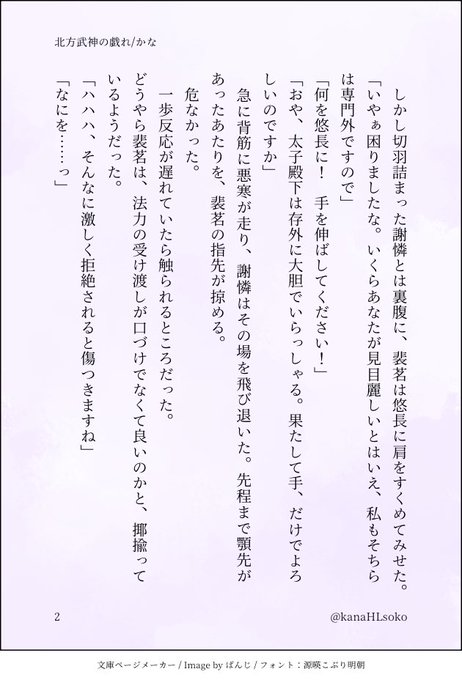 北方武神の戯れ/かな
　しかし切羽詰まった謝憐とは裏腹に、裴茗は悠長に肩をすくめてみせた。
「いやぁ困りましたな。いくらあなたが見目麗しいとはいえ、私もそちら
は専門外ですので」
「何を悠長に！　手を伸ばしてください！」
「おや、太子殿下は存外に大胆でいらっしゃる。果たして手、だけでよろ
しいのですか」
　急に背筋に悪寒が走り、謝憐はその場を飛び退いた。先程まで顎先が
あったあたりを、裴茗の指先が掠める。
　危なかった。
　一歩反応が遅れていたら触られるところだった。
　どうやら裴茗は、法力の受け渡しが口づけでなくて良いのかと、揶揄って
いるようだった。
「ハハハ、そんなに激しく拒絶されると傷つきますね」
「なにを……っ」
2
@kanaHLsoko
文庫ページメーカー / Image by ぱんじ / フォント：源暎こぶり明朝